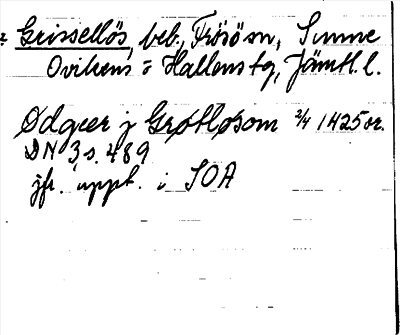 Grissellös, beb., Frösö sn, Sunne
Ovikens o Hallens tg, Jämtl. l.
Ødgeer j Grøtløsom 2/4 1425 or.
DN 3, s. 489
jfr. uppt. i SOA